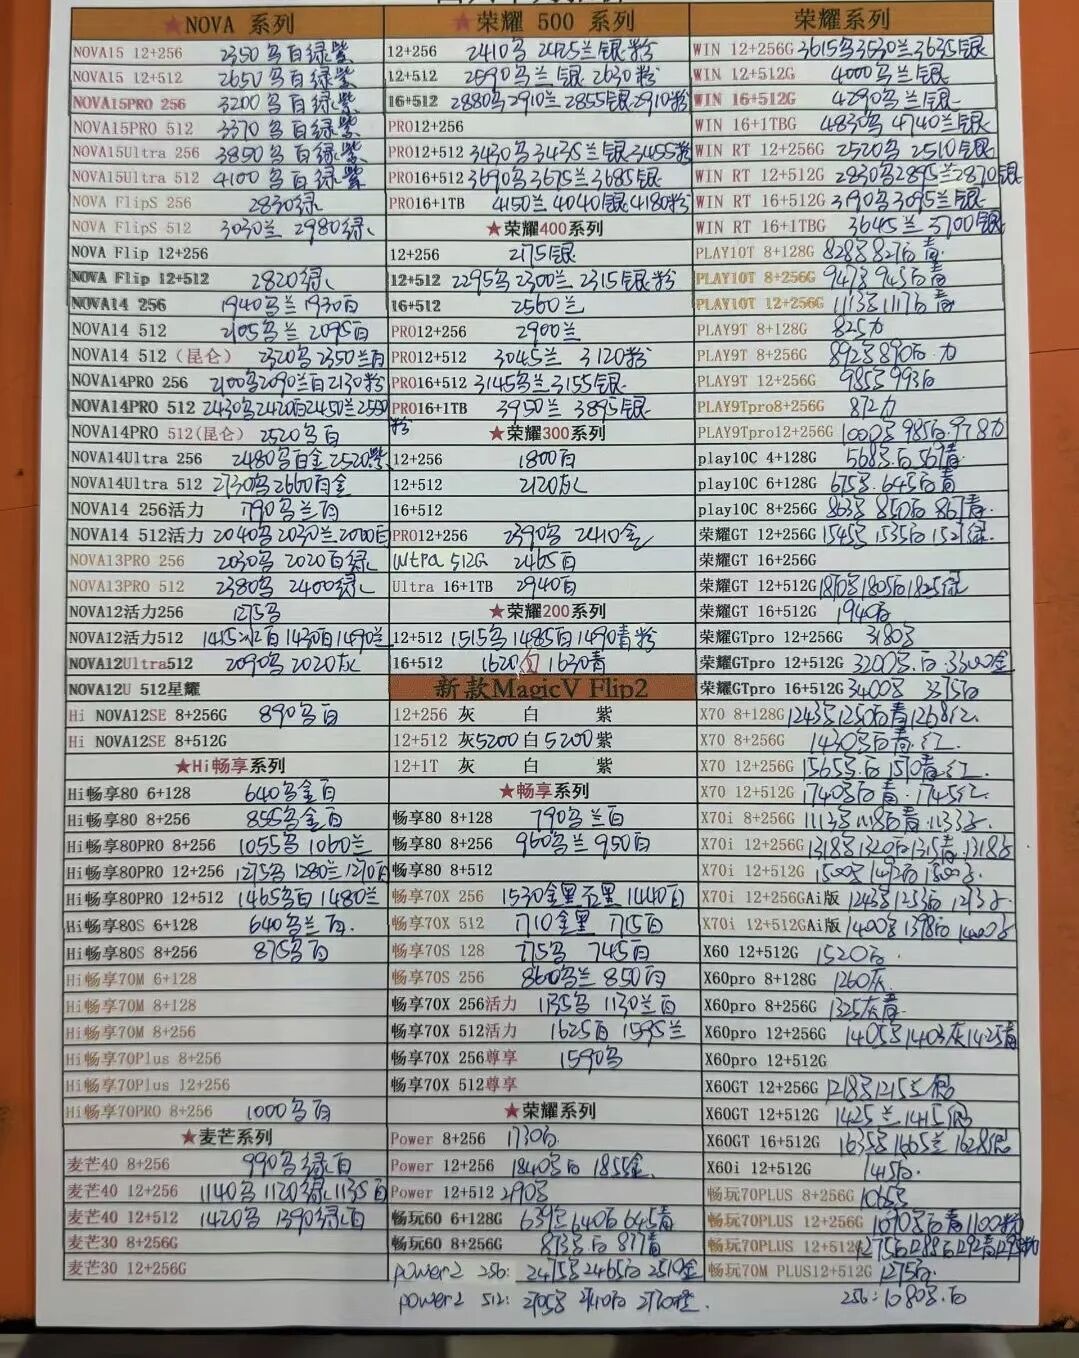 ★NOVA 系列
NOVA15 12+256 2350乌白绿紫
NOVA15 12+512 2650乌白绿紫
NOVA15PRO 256 3200乌白绿紫
NOVA15PRO 512 3370乌白绿紫
NOVA15Ultra 256 3850乌白绿紫
NOVA15Ultra 512 4100乌白绿紫
NOVA FlipS 256 2830绿
NOVA FlipS 512 3030兰 2980绿
NOVA Flip 12+256
NOVA Flip 12+512 2820绿
NOVA14 256 1940乌兰 1930白
NOVA14 512 2105乌兰 2095白
NOVA14 512（昆仑） 2320乌 2350兰白
NOVA14PRO 256 2100乌2090兰白2130粉
NOVA14PRO 512 2430乌2420白2450兰2550粉
NOVA14PRO 512(昆仑) 2520乌白
NOVA14Ultra 256 2480乌白金2520紫
NOVA14Ultra 512 2730乌2660白金
NOVA14 256活力 1790乌兰白
NOVA14 512活力 2040乌2030兰2000白
NOVA13PRO 256 2030乌 2020白绿
NOVA13PRO 512 2380乌 2400绿
NOVA12活力256 1275乌
NOVA12活力512 1430白1490兰
NOVA12Ultra512 2090乌2020灰
NOVA12U 512星耀
Hi NOVA12SE 8+256G 890乌白
Hi NOVA12SE 8+512G
★Hi畅享系列
Hi畅享80 6+128 640乌金白
Hi畅享80 8+256 855乌金白
Hi畅享80PRO 8+256 1055乌 1060兰
Hi畅享80PRO 12+256 1275乌 1280兰 1270白
Hi畅享80PRO 12+512 1465乌白 1480兰
Hi畅享80S 6+128 640乌兰白
Hi畅享80S 8+256 875乌白
Hi畅享70M 6+128
Hi畅享70M 8+128
Hi畅享70M 8+256
Hi畅享70Plus 8+256
Hi畅享70Plus 12+256
Hi畅享70PRO 8+256 1000乌白
★麦芒系列
麦芒40 8+256 990乌绿白
麦芒40 12+256 1140乌1120绿1135白
麦芒40 12+512 1420乌 1390绿白
麦芒30 8+256G
麦芒30 12+256G
★荣耀 500 系列
12+256 2410乌 2425兰银粉
12+512 2590乌兰银2630粉
16+512 2880乌2910兰2855银2910粉
PRO12+256
PRO12+512 3430乌3435兰银3455粉
PRO16+512 3690乌3675兰3685银
PRO16+1TB 4150兰 4040银4180粉
★荣耀400系列
12+256 2175银
12+512 2295乌2300兰 2315银粉
16+512 2560兰
PRO12+256 2900兰
PRO12+512 3045兰 3120粉
PRO16+512 3145乌兰 3155银
PRO16+1TB 3950兰 3895银
★荣耀300系列
12+256 1800白
12+512 2120灰
16+512
PRO12+256 2390乌 2410金
Ultra 512G 2465白
Ultra 16+1TB 2940白
★荣耀200系列
12+512 1515乌1485白1490青粉
16+512 1620白 1630青
新款MagicV Flip2
12+256 灰 白 紫
12+512 灰5200白5200紫
12+1T 灰 白 紫
★畅享系列
畅享80 8+128 790乌兰白
畅享80 8+256 960乌兰 950白
畅享80 8+512
畅享70X 256 1530金黑 1440白
畅享70X 512 1710金黑 1715白
畅享70S 128 775乌 745白
畅享70S 256 860乌兰 850白
畅享70X 256活力 1135乌 1130兰白
畅享70X 512活力 1625白 1595兰
畅享70X 256尊享 1590乌
畅享70X 512尊享
★荣耀系列
Power 8+256 1730白
Power 12+256 1840乌白 1855金
Power 12+512 2190乌
畅玩60 6+128G 639乌640白645青
畅玩60 8+256G 873乌白 877青
power2 256: 2475乌2465白2510金
power2 512: 2705乌 2710白 2760橙
荣耀系列
WIN 12+256G 3615乌3530兰3635银
WIN 12+512G 4000乌兰银
WIN 16+512G 4290乌兰银
WIN 16+1TBG 4830乌 4740兰银
WIN RT 12+256G 2520乌 2510兰银
WIN RT 12+512G 2830乌2895兰2870银
WIN RT 16+512G 3190乌3095兰银
WIN RT 16+1TBG 3645兰 3700银
PLAY10T 8+128G 828乌827白青
PLAY10T 8+256G 947乌945白青
PLAY10T 12+256G 1113乌1117白青
PLAY9T 8+128G 825力
PLAY9T 8+256G 892乌890白力
PLAY9T 12+256G 985乌993白
PLAY9Tpro8+256G 872力
PLAY9Tpro12+256G 1000乌985白978力
play10C 4+128G 568乌白569青
play10C 6+128G 675乌645白青
play10C 8+256G 863乌850白867青
荣耀GT 12+256G 1545乌1535白1527绿
荣耀GT 16+256G
荣耀GT 12+512G 1810乌1805白1825绿
荣耀GT 16+512G 1940白
荣耀GTpro 12+256G 3180乌
荣耀GTpro 12+512G 3200乌白3300金
荣耀GTpro 16+512G 3400乌 3375白
X70 8+128G 1243乌1250白青1268红
X70 8+256G 1430乌白青红
X70 12+256G 1565乌白1570青红
X70 12+512G 1740乌白青1745红
X70i 8+256G 1113乌1118白青1133
X70i 12+256G 1318乌1320白1315青1318
X70i 12+512G 1500乌1492白1500
X70i 12+256GAi版 1243乌1233白1273
X70i 12+512GAi版 1400乌1398白1400
X60 12+512G 1520白
X60pro 8+128G 1260灰
X60pro 8+256G 1325灰青
X60pro 12+256G 1405乌1403灰1425青
X60pro 12+512G
X60GT 12+256G 1218乌1215兰银
X60GT 12+512G 1425兰1415银
X60GT 16+512G 1635乌1665兰1628银
X60i 12+512G 1415白
畅玩70PLUS 8+256G 1065乌
畅玩70PLUS 12+256G 1090乌白青1100粉
畅玩70PLUS 12+512G 1275
畅玩70M PLUS12+512G 1275白
256:1080乌白